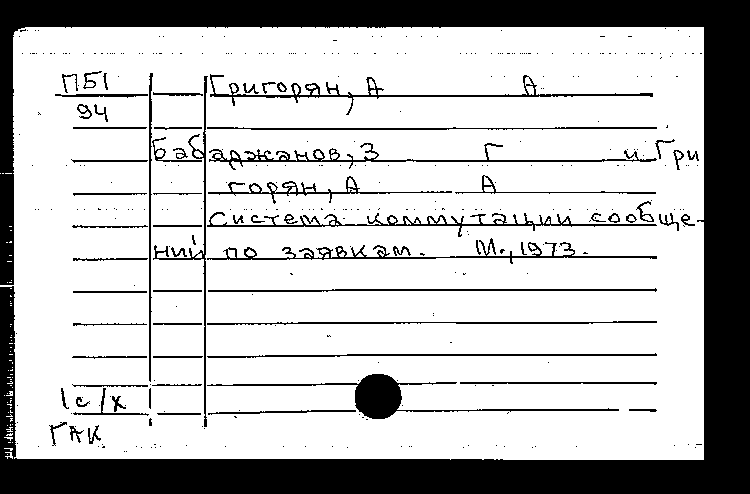 П51
94
Григорян, А А
Бабаджанов, З Г и Гри
горян, А А
Система коммутации сообще-
ний по заявкам. М., 1973.
1с/х
ГАК